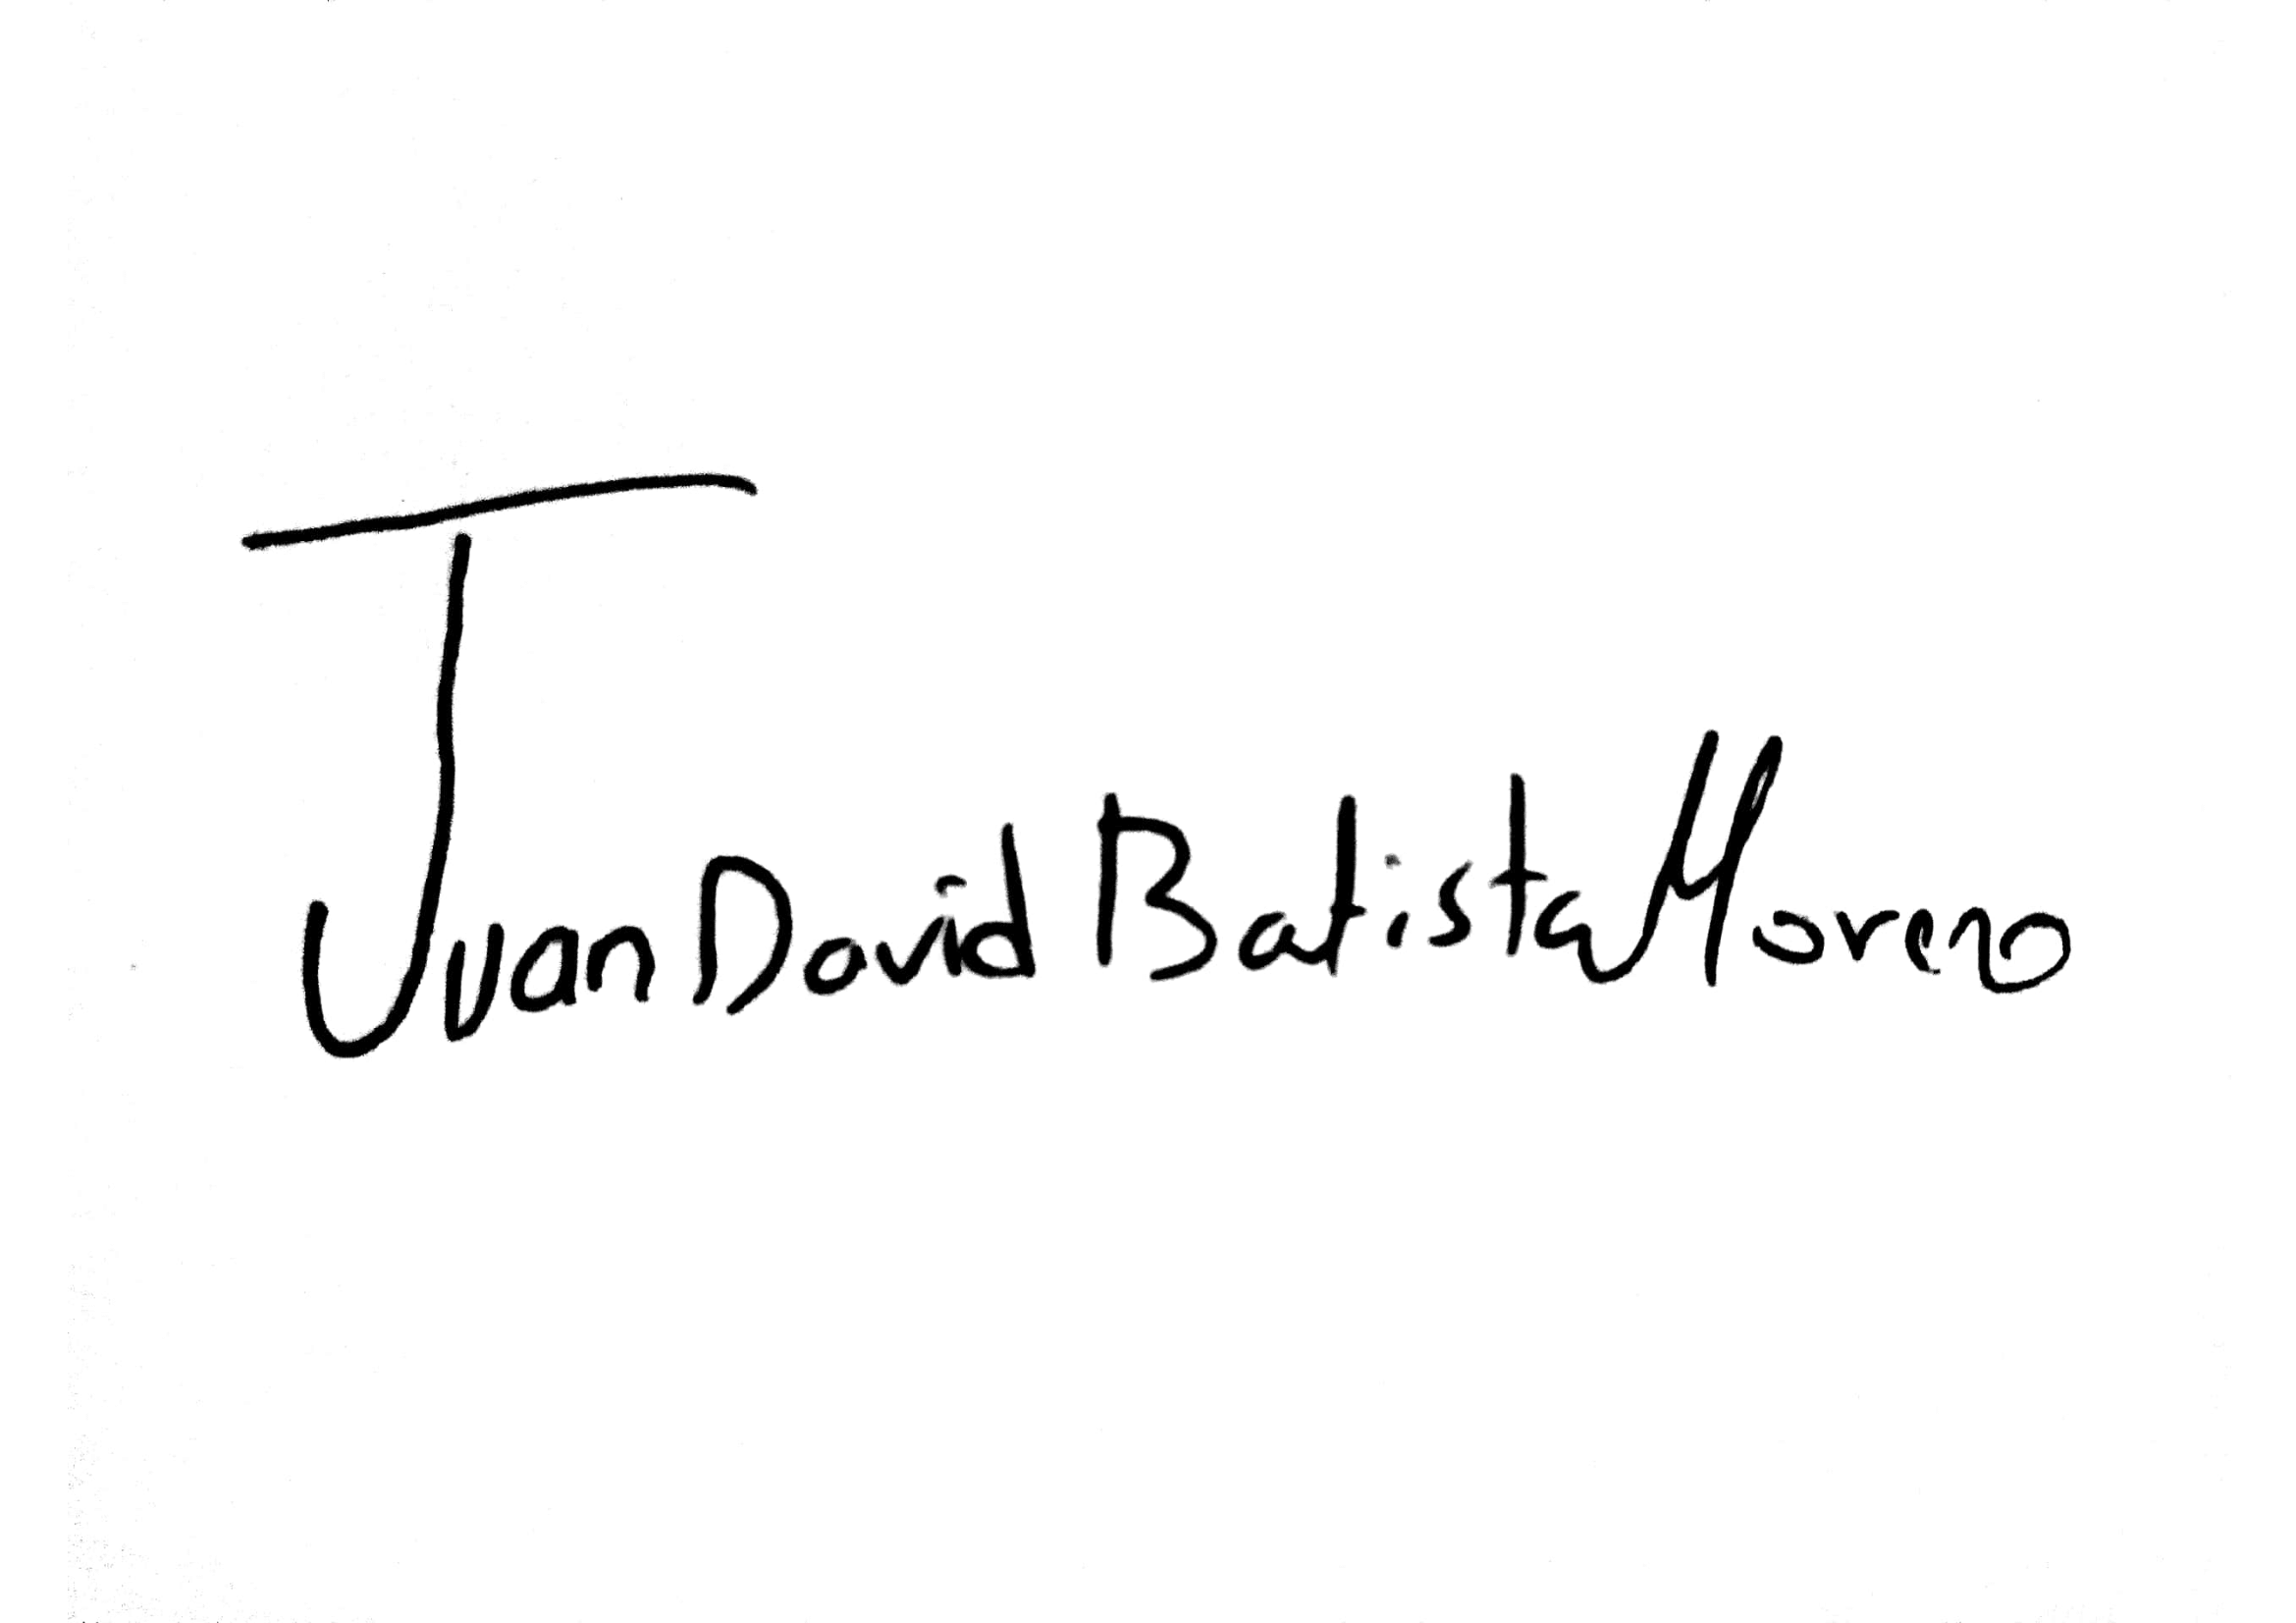 Juan David Batista Moreno